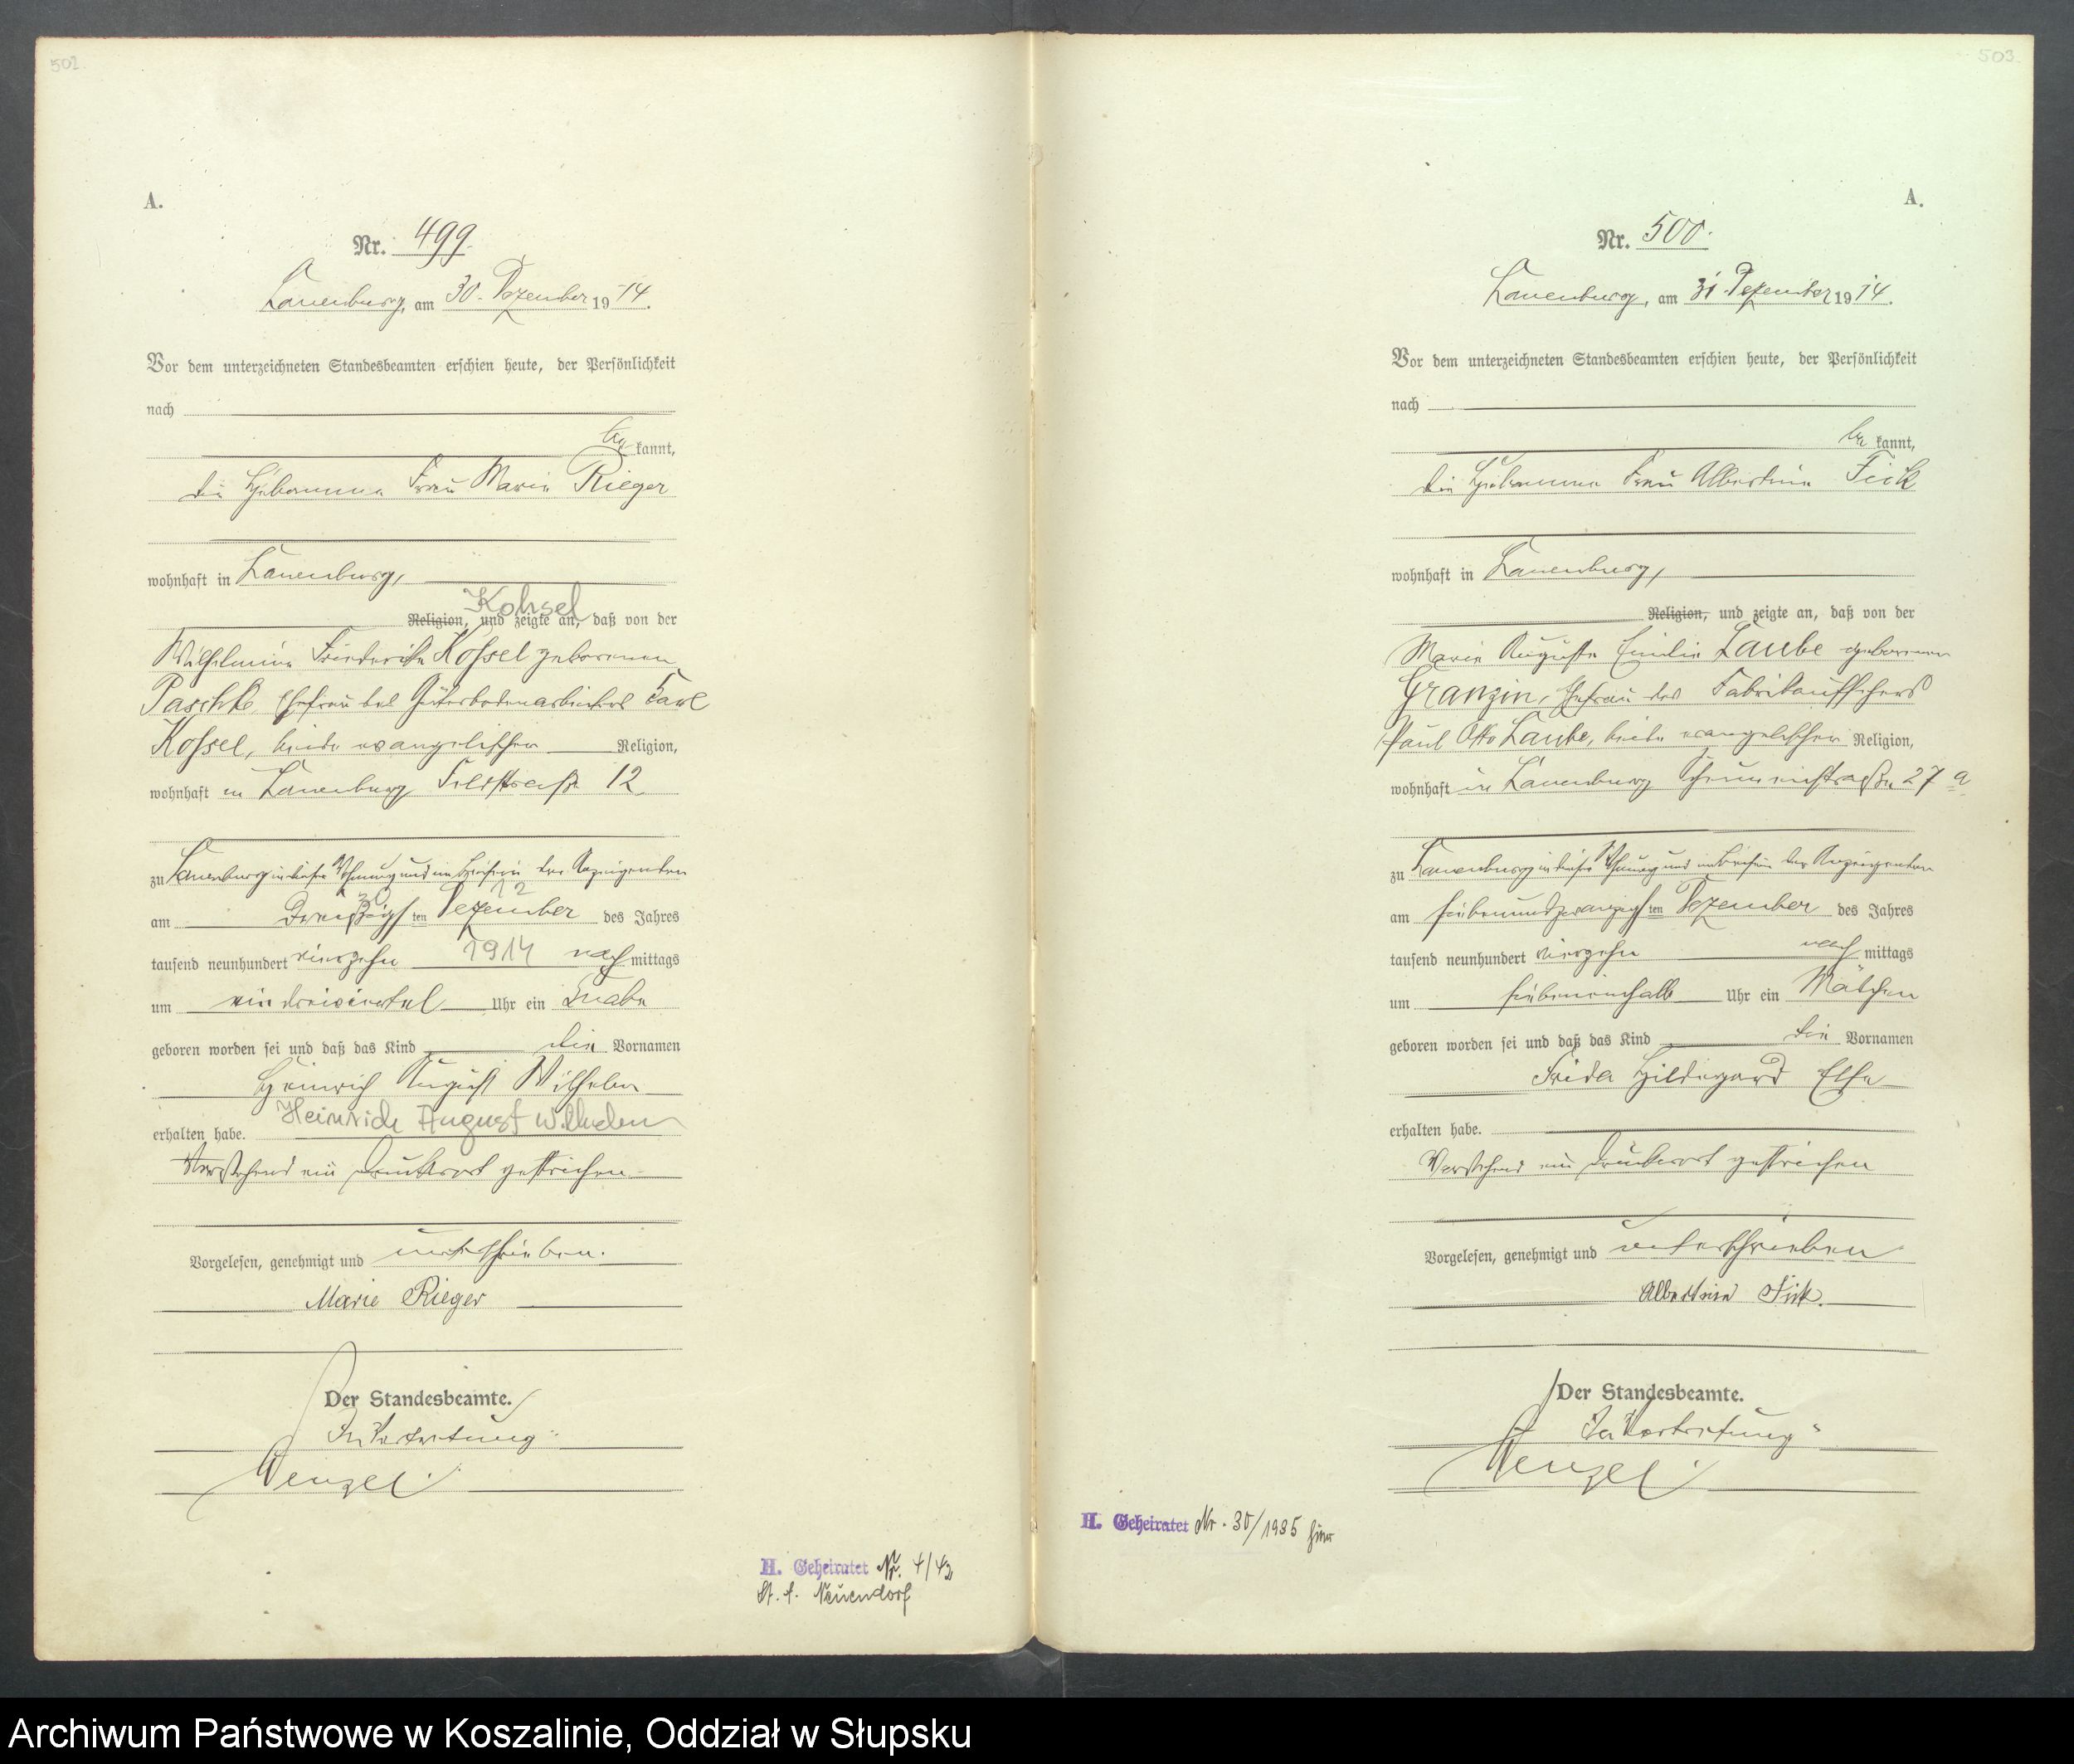 502.
A.
Nr. 499.
Lauenburg, am 30. Dezember 1914.
Vor dem unterzeichneten Standesbeamten erschien heute, der Persönlichkeit
nach
be kannt,
die Hebamme Frau Marie Rieger
wohnhaft in Lauenburg,
Kohsel
Religion, und zeigte an, daß von der
Wilhelmine Friederike Kohsel geborenen
Paschke, Ehefrau des Güterbodenarbeiters Karl
Kohsel, beide evangelischer Religion,
wohnhaft in Lauenburg Feldstraße 12
zu Lauenburg in dieser Wohnung und im Beisein der Anzeigenden
30 12
am Dreißigsten Dezember des Jahres
tausend neunhundert vierzehn 1914 nach mittags
um ein dreiviertel Uhr ein Knabe
geboren worden sei und daß das Kind die Vornamen
Heinrich August Wilhelm
Heinrich August Wilhelm
erhalten habe.
Vorstehend ein Druckwort gestrichen
Vorgelesen, genehmigt und unterschrieben.
Marie Rieger
Der Standesbeamte.
In Vertretung
Wenzel
H. Geheiratet Nr. 4/43
St. A. Neuendorf
503.
A.
Nr. 500.
Lauenburg, am 31. Dezember 1914.
Vor dem unterzeichneten Standesbeamten erschien heute, der Persönlichkeit
nach
be kannt,
die Hebamme Frau Albertine Fick
wohnhaft in Lauenburg,
Religion, und zeigte an, daß von der
Marie Auguste Emilie Laube geborenen
Granzin, Ehefrau des Fabrikaufsehers
Paul Otto Laube, beide evangelischer Religion,
wohnhaft in Lauenburg 27 a
zu Lauenburg in dieser Wohnung und im Beisein der Anzeigenden
am siebenundzwanzigsten Dezember des Jahres
tausend neunhundert vierzehn nach mittags
um siebeneinhalb Uhr ein Mädchen
geboren worden sei und daß das Kind die Vornamen
Frida Hildegard Else
erhalten habe.
Vorstehend ein Druckwort gestrichen
Vorgelesen, genehmigt und unterschrieben
Albertine Fick.
Der Standesbeamte.
In Vertretung
Wenzel
H. Geheiratet Nr. 30/1935 hier
Archiwum Państwowe w Koszalinie, Oddział w Słupsku